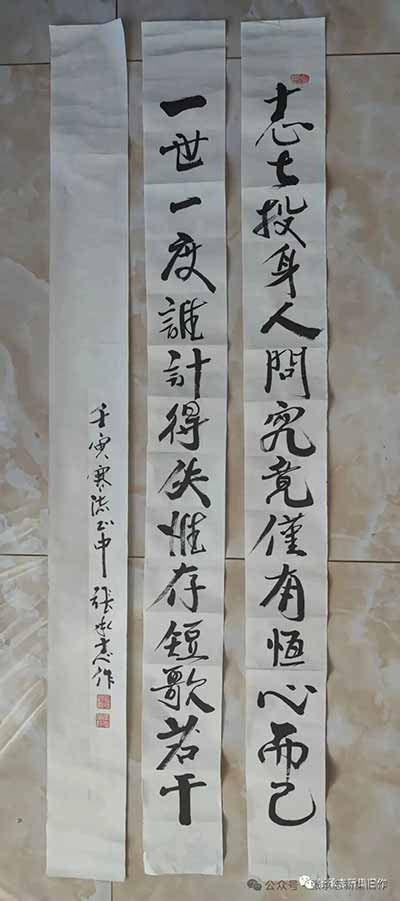 志士投身人問究竟僅有恆心而已
一世一度誰計得失惟存短歌若干
壬寅寒流之中 張承志作
公众号·张承志新集旧作